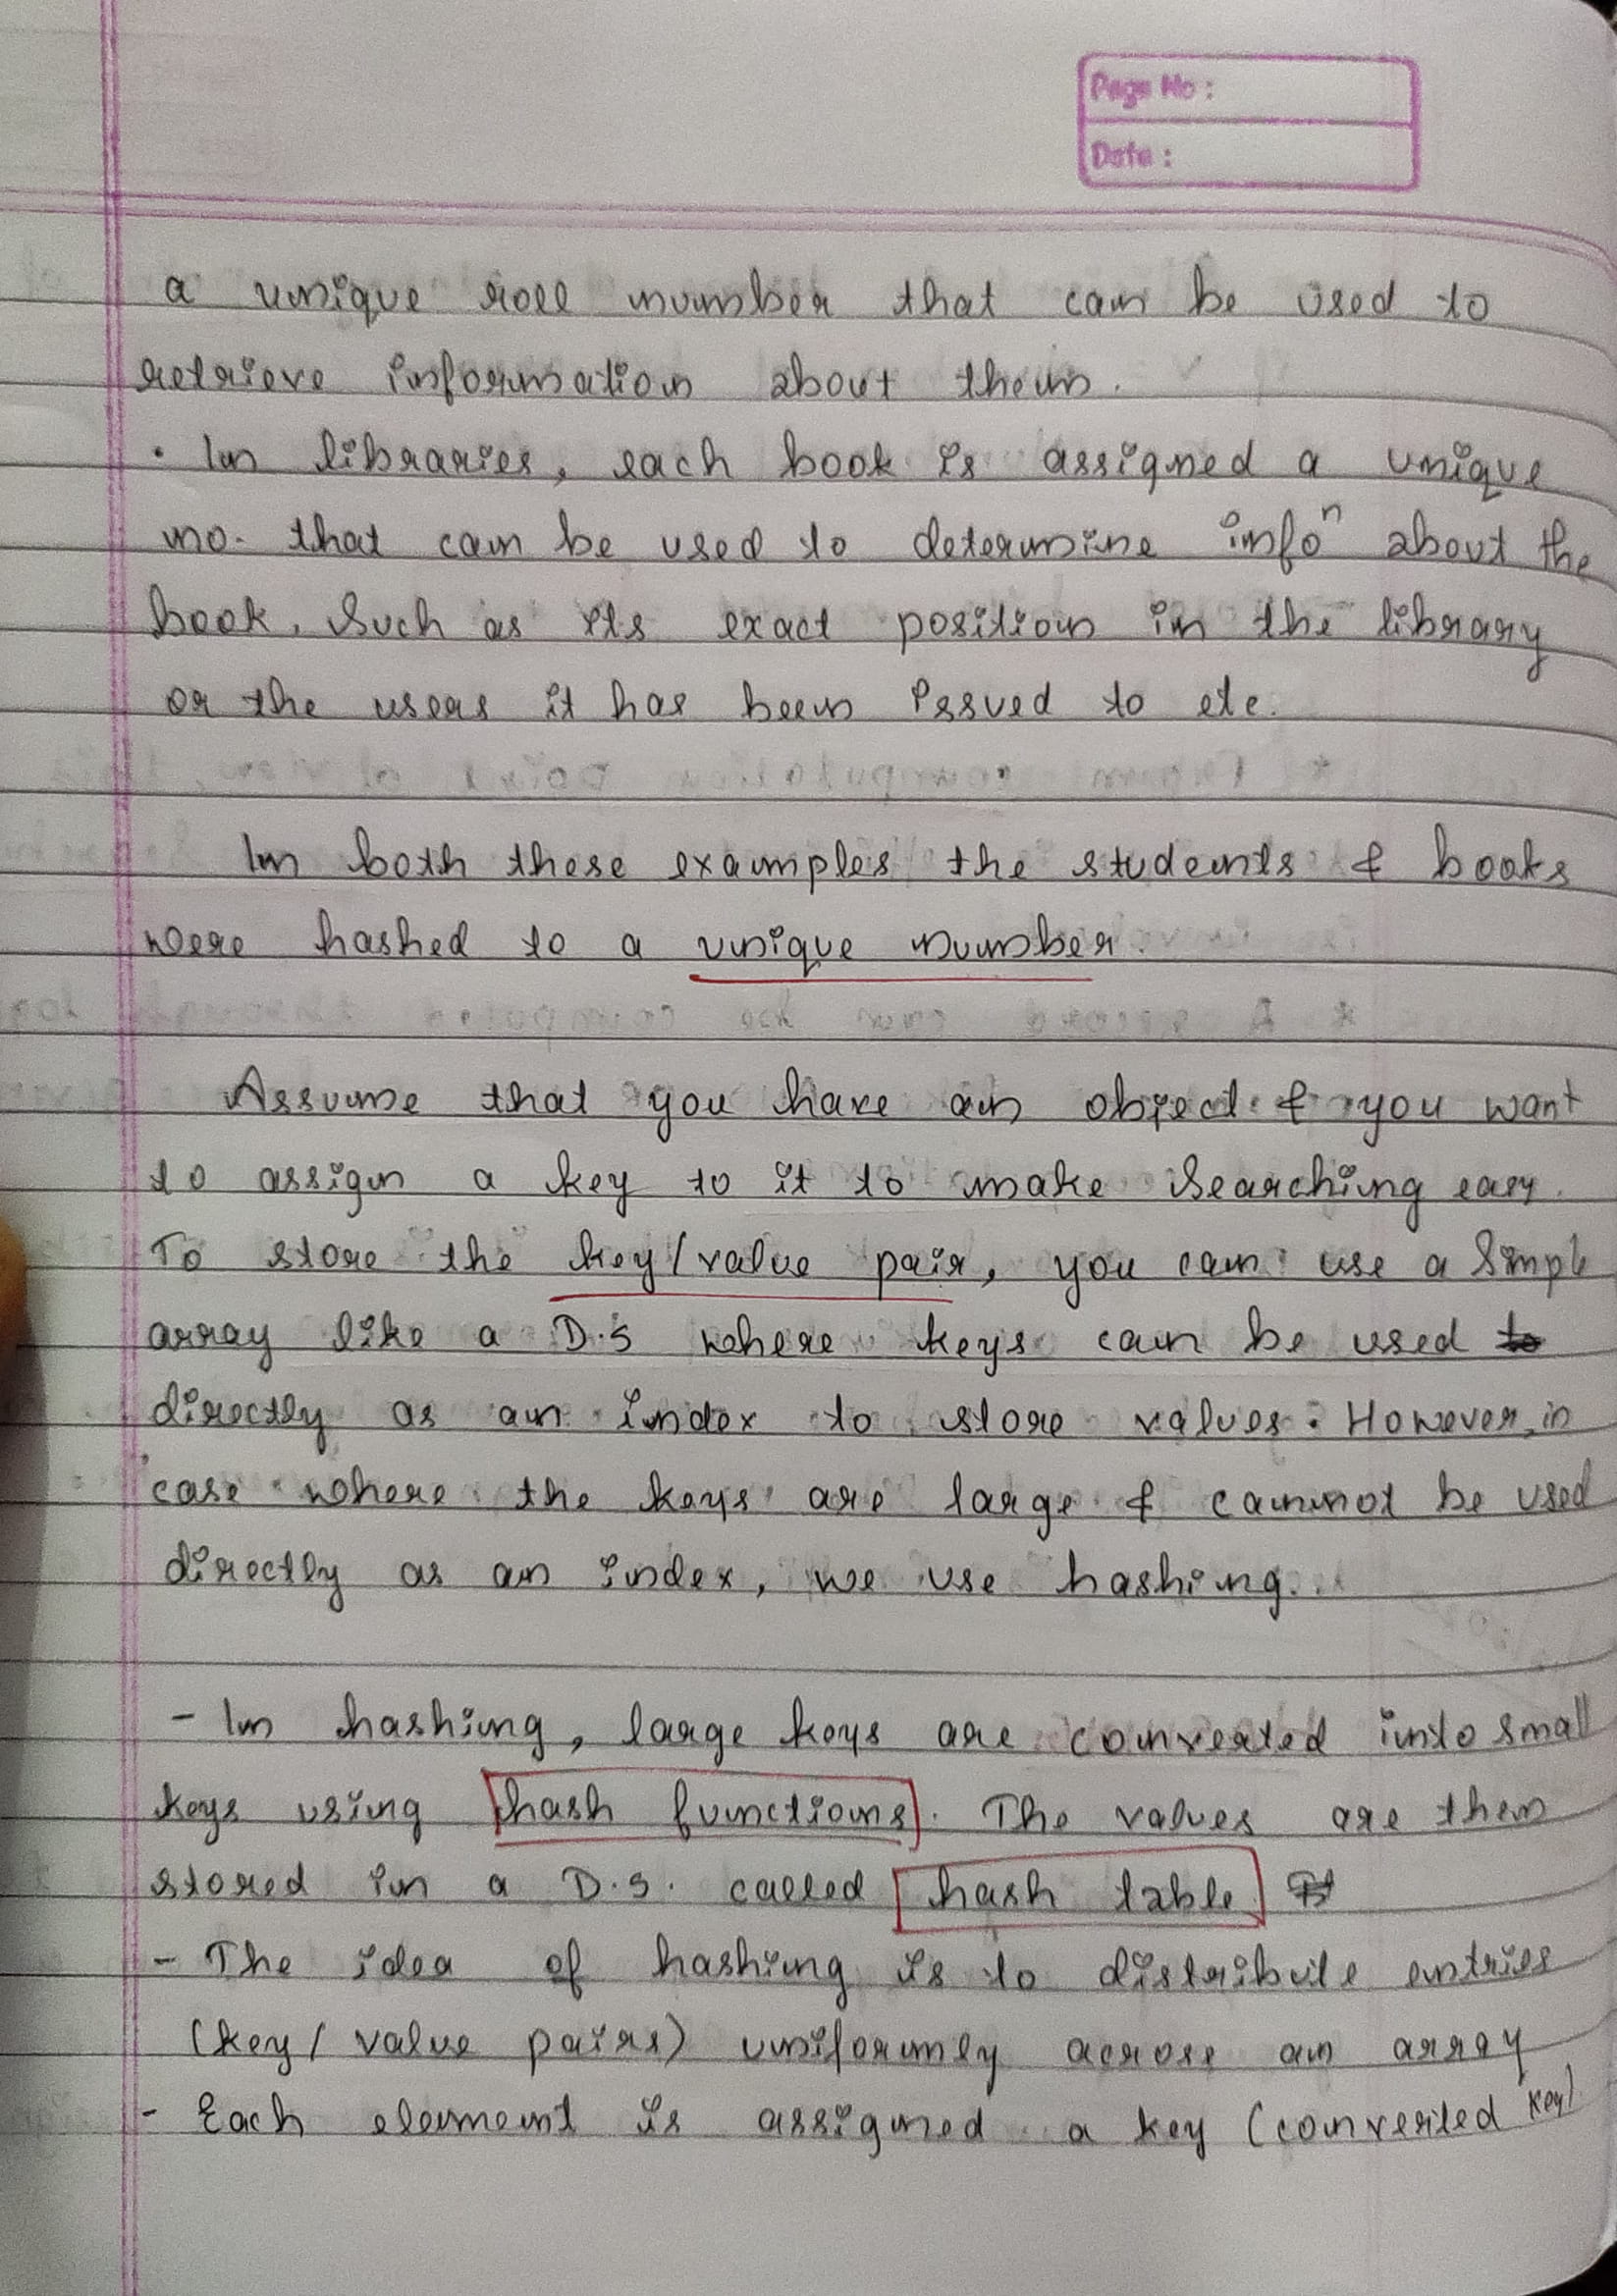 Page No :
Date :
a unique roll number that can be used to
retrieve information about them.
• In libraries, each book is assigned a unique
no. that can be used to determine infoⁿ about the
book, such as its exact position in the library
or the users it has been issued to etc.
In both these examples the students & books
were hashed to a unique number.
Assume that you have an object & you want
to assign a key to it to make searching easy.
To store the key/value pair, you can use a simple
array like a D.S where keys can be used to
directly as an index to store values. However, in
case where the keys are large & cannot be used
directly as an index, we use hashing.
- In hashing, large keys are converted into small
keys using hash functions. The values are then
stored in a D.S. called hash table.
- The idea of hashing is to distribute entries
(key/value pairs) uniformly across an array
- Each element is assigned a key (converted key)